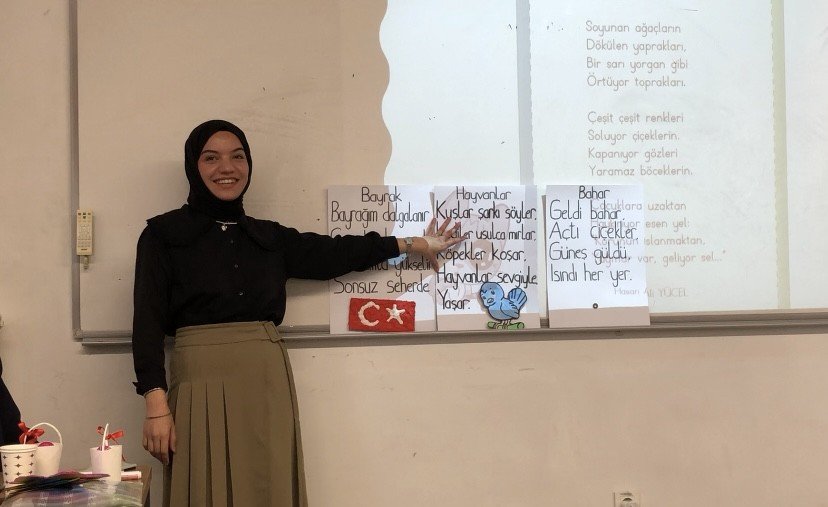 Soyunan ağaçların
Dökülen yaprakları,
Bir sarı yorgan gibi
Örtüyor toprakları.
Çeşit çeşit renkleri
Soluyor çiçeklerin.
Kapanıyor gözleri
Yaramaz böceklerin.
uzaktan
esen yel:
ıslanmaktan,
var, geliyor sel..."
Hasan Ali YÜCEL
Bayrak
Bayrağım dalgalanır
Sonsuz seherde
Hayvanlar
Kuşlar şarkı söyler,
usulca mırlar,
Köpekler koşar,
Hayvanlar sevgiyle
Yaşar.
Bahar
Geldi bahar,
Açtı çiçekler
Güneş güldü,
Isındı her yer.